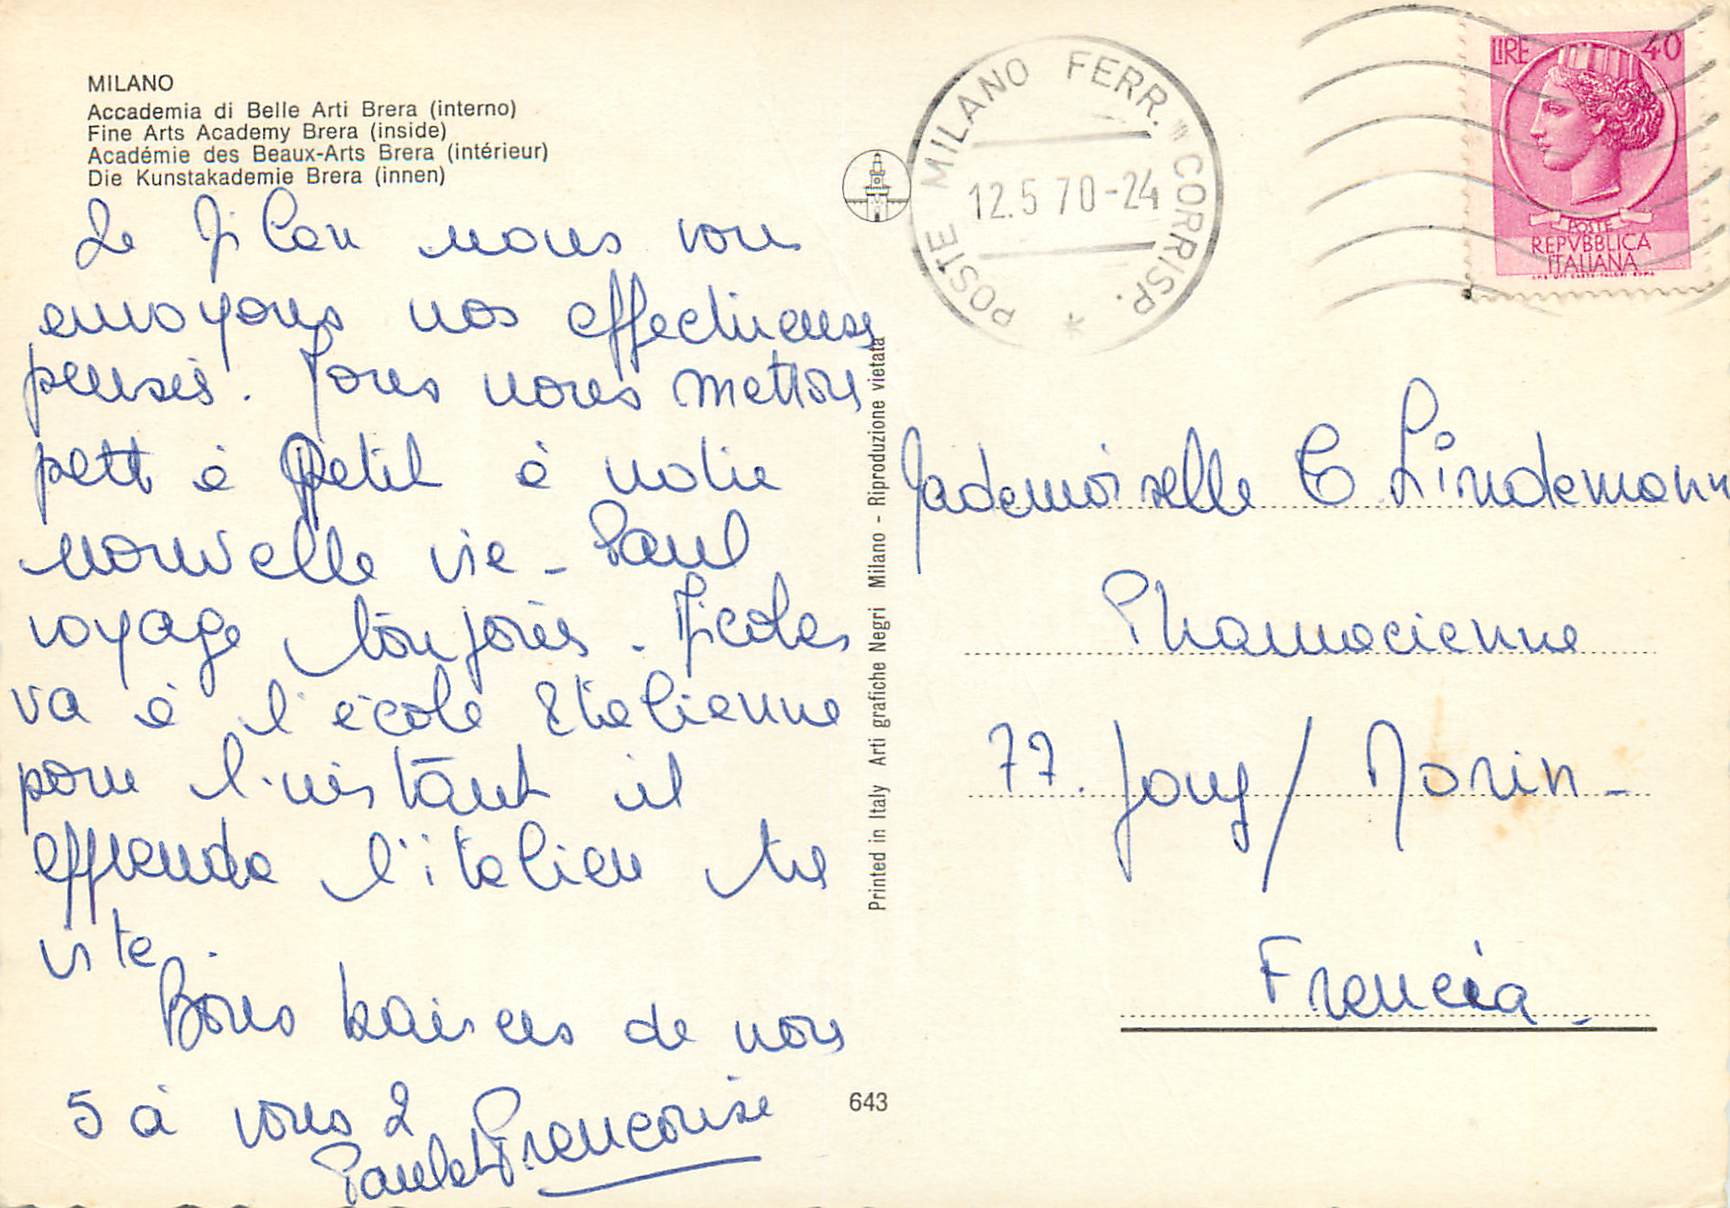 MILANO
Accademia di Belle Arti Brera (interno)
Fine Arts Academy Brera (inside)
Académie des Beaux-Arts Brera (intérieur)
Die Kunstakademie Brera (innen)
De Milan nous vous
envoyons nos affectueuses
pensées. Nous nous mettons
petit à petit à notre
nouvelle vie - Paul
voyage toujours. Nicolas
va à l'école Italienne
pour l'instant il
apprendra l'italien très
vite.
Bons baisers de nous
5 à vous 2
Paul et Françoise
POSTE MILANO FERR. CORRISP.
12.5 70-24
LIRE 40
POSTE
REPVBBLICA
ITALIANA
Printed in Italy Arti grafiche Negri Milano - Riproduzione vietata
Mademoiselle C Lindemann
Pharmacienne
77. Jouy / Morin -
Francia -
643